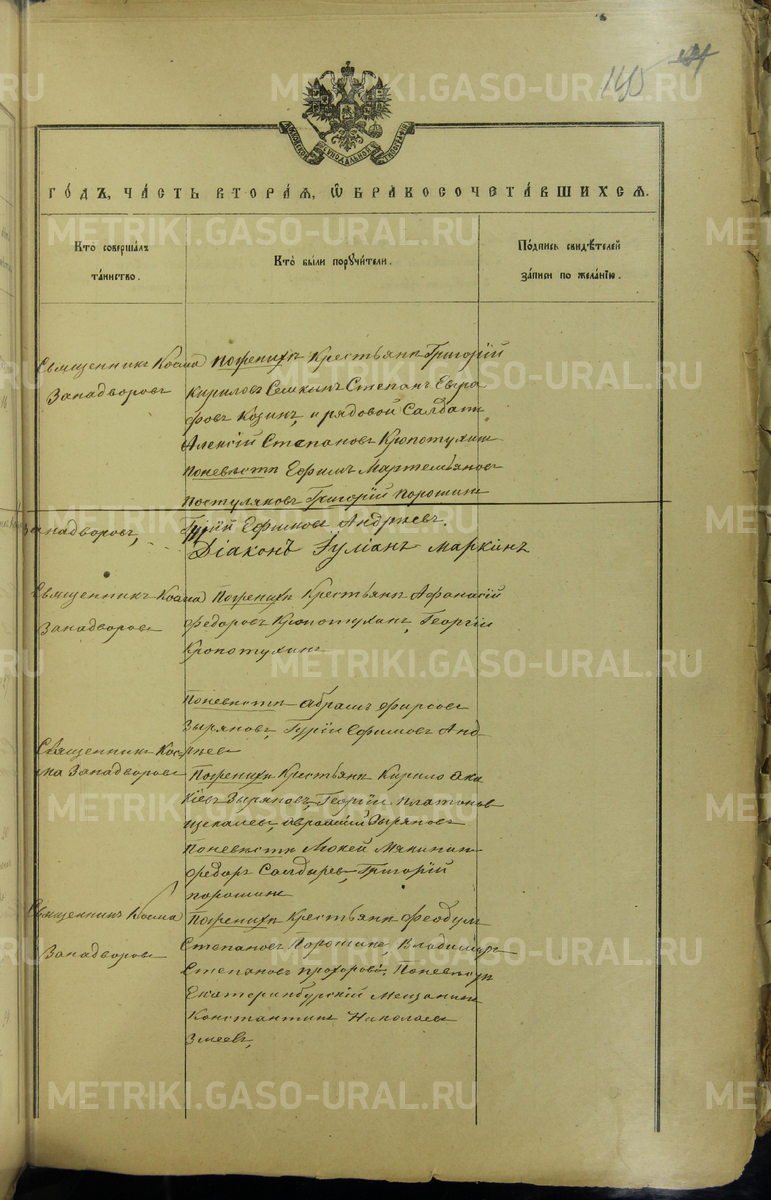 145
МОСКОВСКОЙ СѴНОДАЛЬНОЙ ТИПОГРАФІИ
ГОДЪ, ЧАСТЬ ВТОРАЯ, Ѡ БРАКОСОЧЕТАВШИХСЯ.
Кто совершалъ таинство.
Кто были поручители.
Подпись свидѣтелей записи по желанію.
Священникъ Косма
Западворовъ
Поженихѣ Крестьяне Григорій
Кириловъ Семкинъ Степанъ Евгра
фовъ Козинъ, и рядовой Солдатъ
Алексій Степановъ Кропотухинъ
Поневѣстѣ Ефимъ Мартемьяновъ
Постуляковъ Григорій Порошинъ
Западворовъ,
Гурій Ефимовъ Андреевъ.
Діаконъ Іуліанъ Маркинъ
Священникъ Косма
Западворовъ
Поженихѣ Крестьяне Афанасій
Федоровъ Кропотухинъ, Георгій
Кропотухинъ
Поневѣстѣ Абрамъ Фирсовъ
Зыряновъ, Гурій Ефимовъ Анд-
реевъ
Священникъ Кос
ма Западворовъ
Поженихѣ Крестьяне Кирило Ака
кіевъ Зыряновъ, Георгій Платоновъ
Щекалевъ, Авраамій Зыряновъ
Поневѣстѣ Мокей Мякининъ
Федоръ Солдыревъ, Григорій
Порошинъ
Священникъ Косма
Западворовъ
Поженихѣ Крестьяне Феодулъ
Степановъ Порошинъ, Владиміръ
Степановъ Прохоровъ, Поневѣстѣ
Екатеринбургскій Мещанинъ
Константинъ Николаевъ
Змеевъ,
METRIKI.GASO-URAL.RU